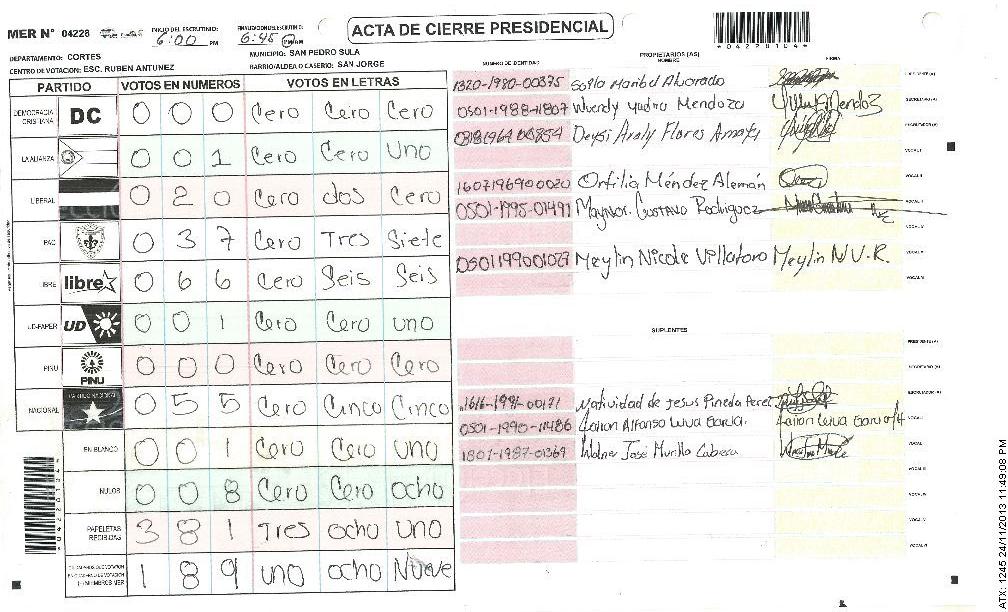 MER N° 04228 INICIO DEL ESCRUTINIO: 6:00 PM FINALIZACION DEL ESCRUTINIO: 6:45 PM
ACTA DE CIERRE PRESIDENCIAL
DEPARTAMENTO: CORTES MUNICIPIO: SAN PEDRO SULA
CENTRO DE VOTACION: ESC. RUBEN ANTUNEZ BARRIO/ALDEA O CASERIO: SAN JORGE
PARTIDO VOTOS EN NUMEROS VOTOS EN LETRAS
DEMOCRACIA CRISTIANA DC 0 0 0 Cero Cero Cero
LA ALIANZA 0 0 1 Cero Cero Uno
LIBERAL 0 2 0 Cero dos Cero
PAC 0 3 7 Cero Tres Siete
LIBRE libre 0 6 6 Cero Seis Seis
UD-FAPER UD 0 0 1 Cero Cero uno
PINU PINU 0 0 0 Cero Cero Cero
NACIONAL PARTIDO NACIONAL 0 5 5 Cero Cinco Cinco
EN BLANCO 0 0 1 Cero Cero uno
NULOS 0 0 8 Cero Cero ocho
PAPELETAS RECIBIDAS 3 8 1 Tres ocho uno
1 8 9 uno ocho Nueve
*04228104*
PROPIETARIOS (AS)
NUMERO DE IDENTIDAD NOMBRE FIRMA
1320-1980-00375 Sofia Maribel Alvarado PRESIDENTE (A)
0501-1988-11807 Wendy Yadira Mendoza SECRETARIO (A)
Deysi Araly Flores Amaya ESCRUTADOR (A)
VOCAL I
1607196900020 Orfilia Méndez Alemán VOCAL II
0501-1995-01491 Maynor Gustavo Rodriguez
VOCAL IV
0501199001029 Meylin Nicole Villatoro Meylin N V. R. VOCAL V
SUPLENTES
PRESIDENTE (A)
SECRETARIO (A)
1616-1991-00171 Natividad de Jesus Pineda Perez ESCRUTADOR (A)
0501-1990-11486 Alfonso Leiva Garcia. VOCAL I
1807-1987-01369 Jose Murillo Cabrera VOCAL II
VOCAL III
VOCAL IV
VOCAL V
ATX: 1245 24/11/2013 11:49:08 PM